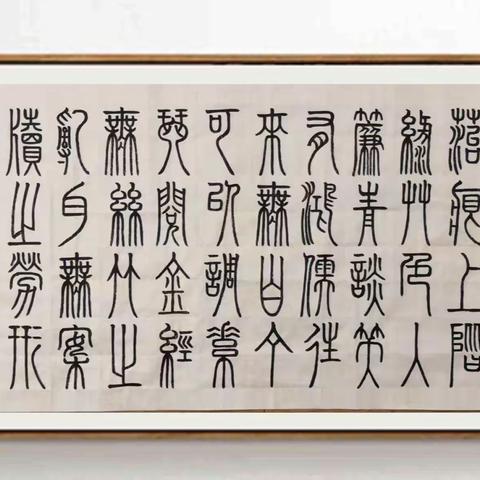 苔痕上階
綠艸色入
簾青談笑
有鴻儒往
來無白丁
可以調素
琴閱金經
無絲竹之
亂耳無案
牘之勞形